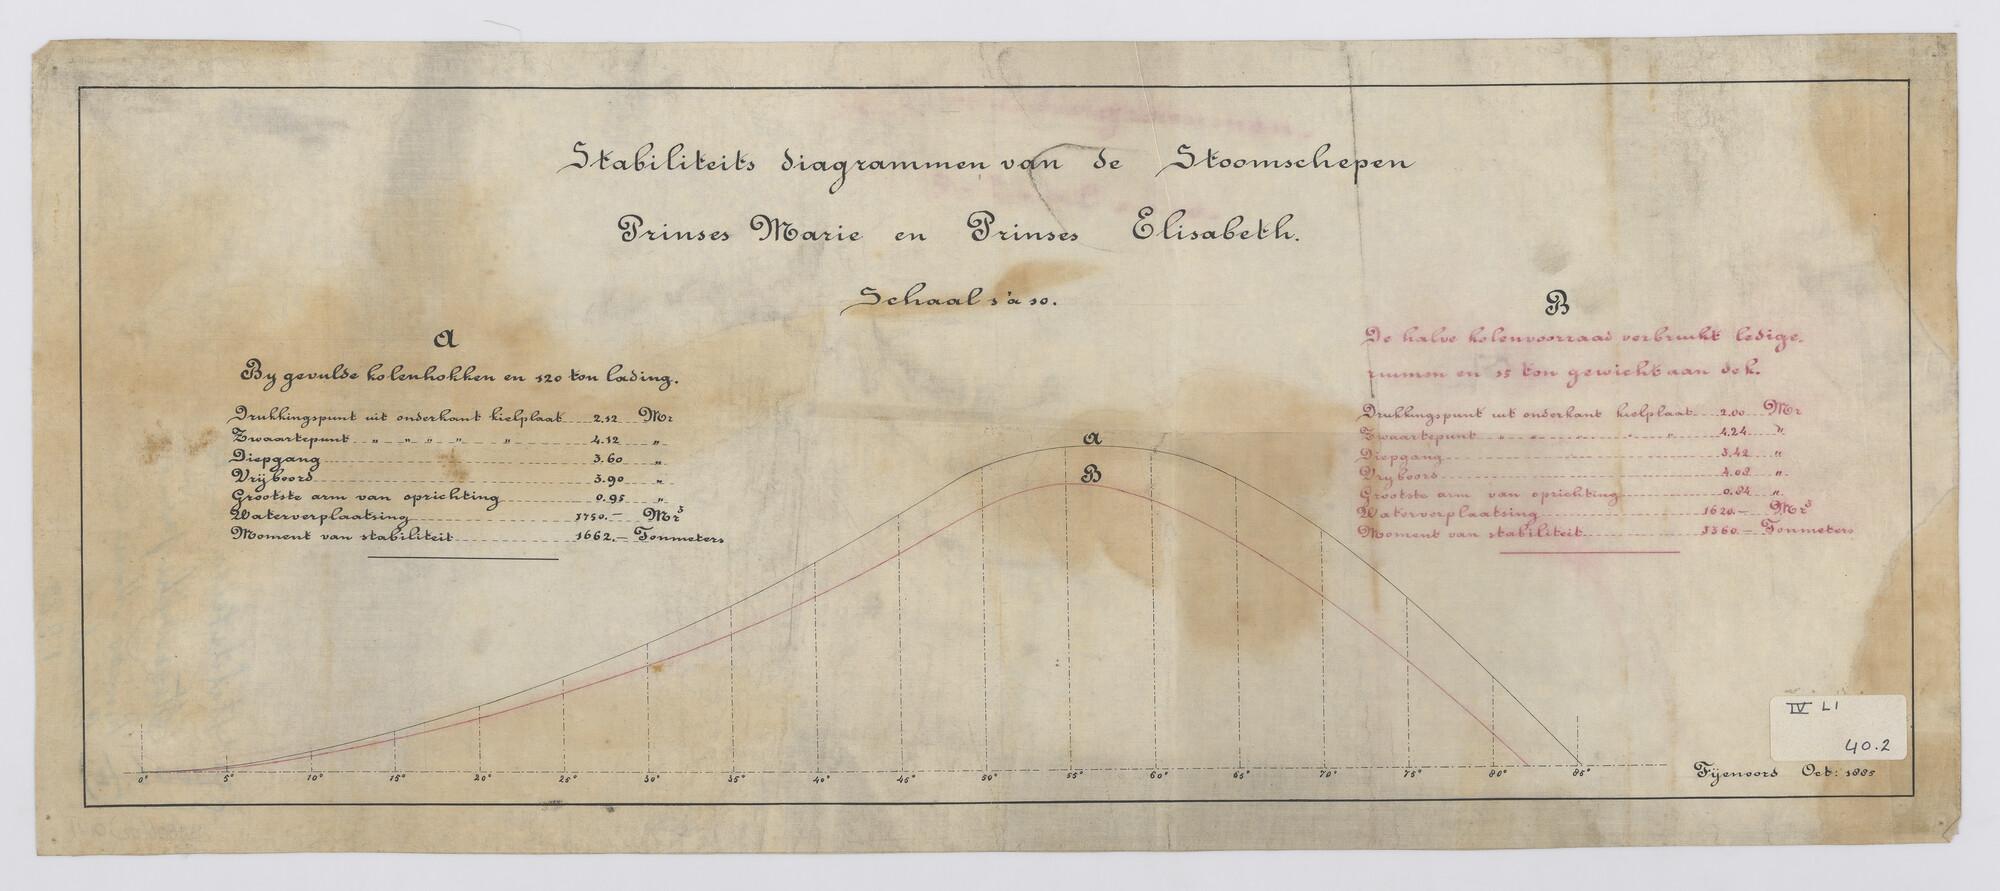 Stabiliteits diagrammen van de Stoomschepen
Prinses Marie en Prinses Elisabeth.
Schaal 1 à 10.
A
By gevulde kolenhokken en 120 ton lading.
Drukkingspunt uit onderkant kielplaat 2.12 Mr
Zwaartepunt " " " " " 4.12 "
Diepgang 3.60 "
Vrijboord 3.90 "
Grootste arm van oprichting 0.95 "
Waterverplaatsing 1750.— Mr³
Moment van stabiliteit 1662.— Tonmeters
B
De halve kolenvoorraad verbruikt ledige
ruimen en 15 ton gewicht aan dek.
Drukkingspunt uit onderkant kielplaat 2.00 Mr
Zwaartepunt " " " " " 4.24 "
Diepgang 3.42 "
Vrijboord 4.08 "
Grootste arm van oprichting 0.84 "
Waterverplaatsing 1620.— Mr³
Moment van stabiliteit 1360.— Tonmeters
A
B
0° 5° 10° 15° 20° 25° 30° 35° 40° 45° 50° 55° 60° 65° 70° 75° 80° 85°
Fijenoord Oct: 1885
IV L1
40.2